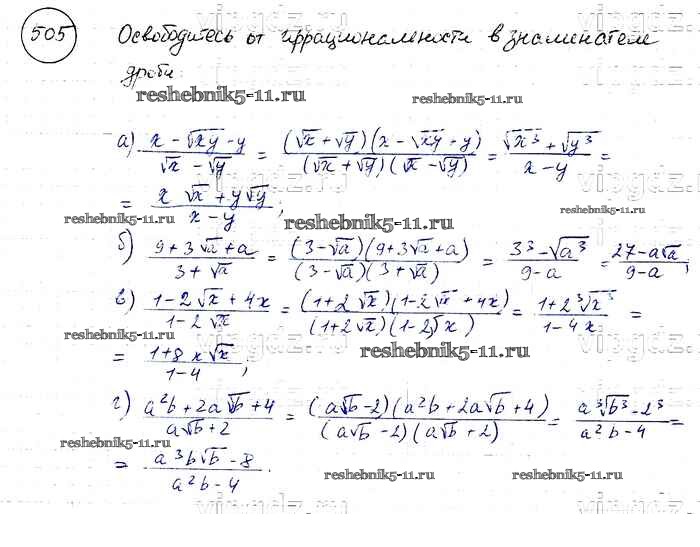 505 Освободитесь от иррациональности в знаменателе
дроби:
reshebnik5-11.ru
а) (x - √xy - y)/(√x - √y) = ((√x + √y)(x - √xy + y))/((√x + √y)(√x - √y)) = (√x³ + √y³)/(x - y) =
= (x √x + y√y)/(x - y);
reshebnik5-11.ru
reshebnik5-11.ru
б) (9 + 3√a + a)/(3 + √a) = ((3 - √a)(9 + 3√a + a))/((3 - √a)(3 + √a)) = (3³ - √a³)/(9 - a) = (27 - a√a)/(9 - a);
в) (1 - 2√x + 4x)/(1 - 2√x) = ((1 + 2√x)(1 - 2√x + 4x))/((1 + 2√x)(1 - 2√x)) = (1 + 2³√x³)/(1 - 4x) =
reshebnik5-11.ru
= (1 + 8x√x)/(1 - 4);
reshebnik5-11.ru
г) (a²b + 2a√b + 4)/(a√b + 2) = ((a√b - 2)(a²b + 2a√b + 4))/((a√b - 2)(a√b + 2)) = (a³√b³ - 2³)/(a²b - 4) =
reshebnik5-11.ru
= (a³b√b - 8)/(a²b - 4).
reshebnik5-11.ru
reshebnik5-11.ru